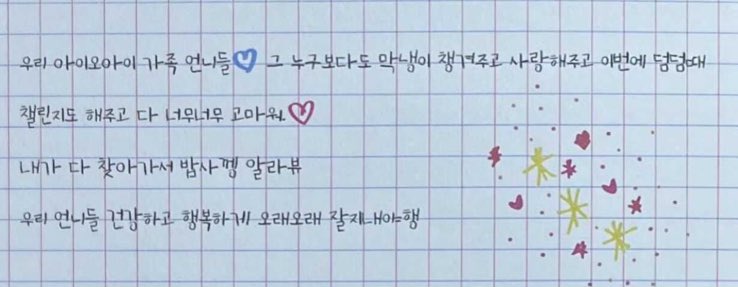 우리 아이오아이 가족 언니들♡ 그 누구보다도 막냉이 챙겨주고 사랑해주고 이번에 덤덤때
챌린지도 해주고 다 너무너무 고마워♡
내가 다 찾아가서 밥사껭 알라뷰
우리 언니들 건강하고 행복하게 오래오래 잘지내야행